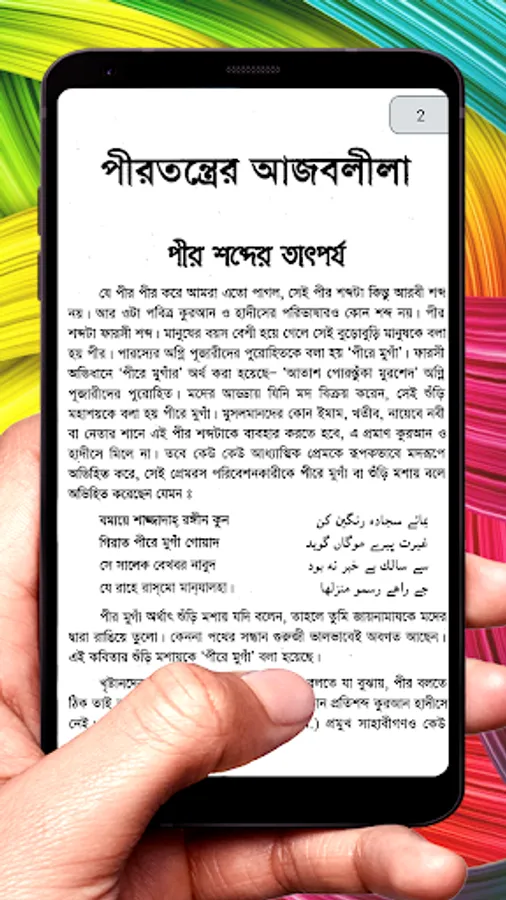 2
পীরতন্ত্রের আজবলীলা
পীর শব্দের তাৎপর্য
যে পীর পীর করে আমরা এতো পাগল, সেই পীর শব্দটা কিন্তু আরবী শব্দ
নয়। আর ওটা পবিত্র কুরআন ও হাদীসের পরিভাষারও কোন শব্দ নয়। পীর
শব্দটা ফারসী শব্দ। মানুষের বয়স বেশী হয়ে গেলে সেই বুড়োবুড়ি মানুষকে বলা
হয় পীর। পারস্যের অগ্নি পূজারীদের পুরোহিতকে বলা হয় 'পীরে মুগাঁ'। ফারসী
অভিধানে 'পীরে মুগাঁর' অর্থ করা হয়েছে– 'আতাশ পোরস্তুঁকা মুরশেদ' অগ্নি
পূজারীদের পুরোহিত। মদের আড্ডায় যিনি মদ বিক্রয় করেন, সেই শুঁড়ি
মহাশয়কে বলা হয় পীরে মুগাঁ। মুসলমানদের কোন ইমাম, খতীব, নায়েবে নবী
বা নেতার শানে এই পীর শব্দটাকে ব্যবহার করতে হবে, এ প্রমাণ কুরআন ও
হাদীসে মিলে না। তবে কেউ কেউ আধ্যাত্মিক প্রেমকে রূপকভাবে মদরূপে
অভিহিত করে, সেই প্রেমরস পরিবেশনকারীকে পীরে মুগাঁ বা শুঁড়ি মশায় বলে
অভিহিত করেছেন যেমন ঃ
বমায়ে শাজ্জাদাহ্ রঙ্গীন কুন
بمائے سجادہ رنگین کن
গিরাত পীরে মুগাঁ গোয়াদ
غیرت پیرے موگاں گوید
সে সালেক বেখবর নাবুদ
سے سالك بے خبر نہ بود
যে রাহে রাস্‌মো মান্‌যালহা।
جے راهے رسمو منزلها
পীর মুগাঁ অর্থাৎ শুঁড়ি মশায় যদি বলেন, তাহলে তুমি জায়নামাযকে মদের
দ্বারা রাঙিয়ে তুলো। কেননা পথের সন্ধান গুরুজী ভালভাবেই অবগত আছেন।
এই কবিতার শুঁড়ি মশায়কে 'পীরে মুগাঁ' বলা হয়েছে।
বলতে যা বুঝায়, পীর বলতে
ঠিক তাই প্রতিশব্দ কুরআন হাদীসে
নেই প্রমুখ সাহাবীগণও কেউ